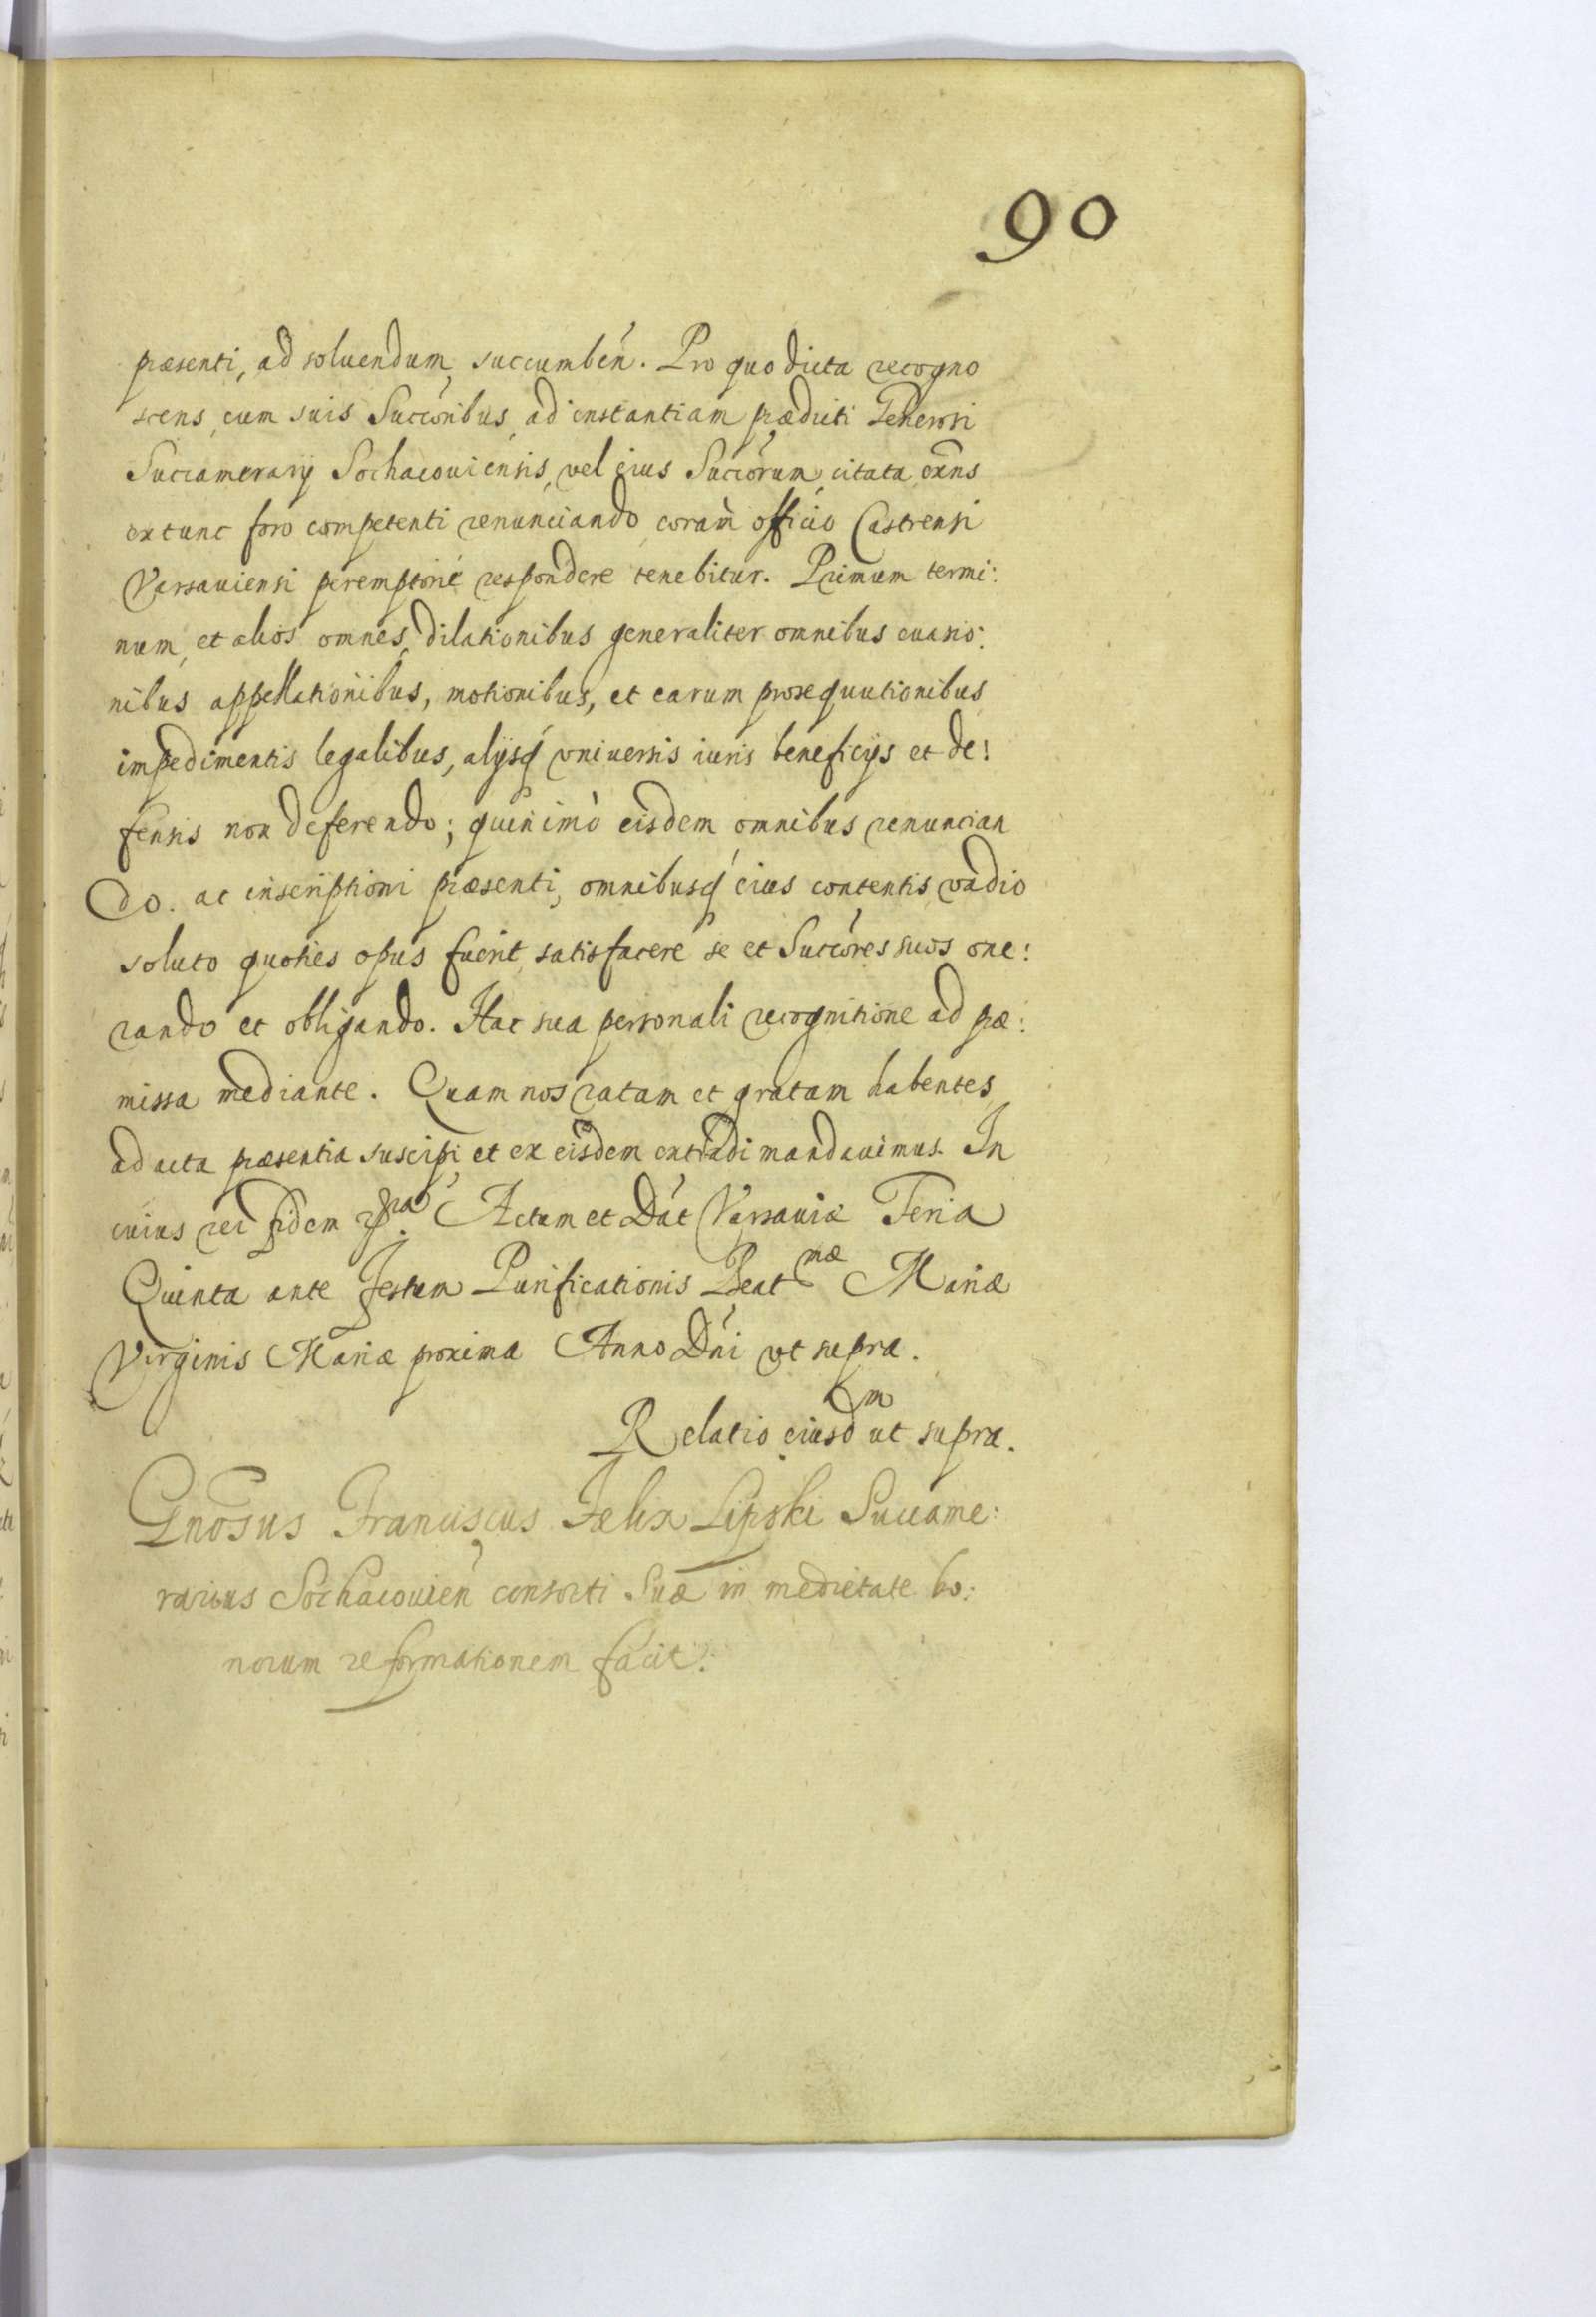 90
præsenti, ad soluendum, succumbén. Pro quo dicta recogno
scens, cum suis Succoribus, ad instantiam prædicti Generosi
Succamerarij Sochacouiensis, vel eius Succorum, citata, oms
extunc foro competenti renunciando, coram officio Castrensi
Varsauiensi peremptorié respondere tenebitur. Primum termi:
num, et alios omnes, dilationibus generaliter omnibus euasio:
nibus appellationibus, motionibus, et earum prosequutionibus
impedimentis legalibus, alijsq́ vniuersis iuris beneficijs et de:
fensis non deferendo; quinimò eisdem omnibus renuncian
do. ac inscriptioni præsenti, omnibusq́ eius contentis, vadio
soluto quoties opus fuerit, satisfacere se et Succores suos one:
rando et obligando. Hac sua personali recognitione ad præ:
missa mediante. Quam nos ratam et gratam habentes
ad acta præsentia suscipi et ex eisdem extradi mandauimus. In
cuius rei fidem Actum et Dát Varsauiæ Feria
Quinta ante Festum Purificationis Beatmæ Mariæ
Virginis Mariæ proxima Anno Dńi vt supra.
Relatio eiusdm ut supra.
Gnosus Franciscus Felix Lipski Succame:
rarius Sochacouień consorti suæ in medietate bo:
norum reformationem facit.